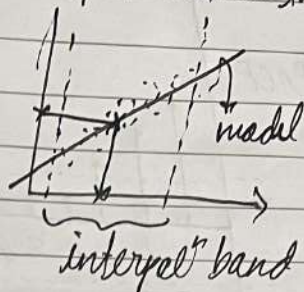 model
interpelⁿ band